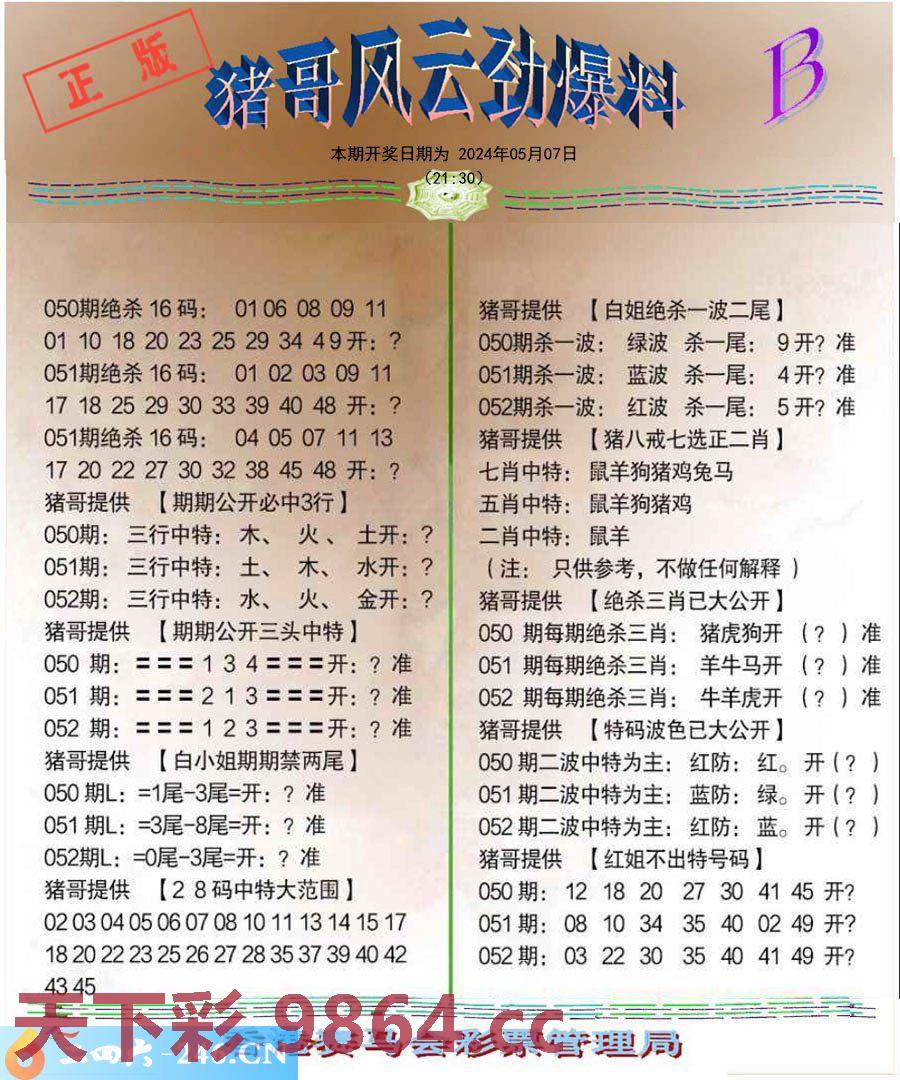 正版
猪哥风云劲爆料
B
本期开奖日期为 2024年05月07日
(21:30)
050期绝杀 16 码： 01 06 08 09 11
01 10 18 20 23 25 29 34 4 9 开：？
051期绝杀 16 码： 01 02 03 09 11
17 18 25 29 30 33 39 40 48 开：？
051期绝杀 16 码： 04 05 07 11 13
17 20 22 27 30 32 38 45 48 开：？
猪哥提供 【期期公开必中3行】
050期： 三行中特： 木、 火 、 土开：？
051期： 三行中特： 土、 木、 水开：？
052期： 三行中特： 水、 火、 金开：？
猪哥提供 【期期公开三头中特】
050 期：=== 1 3 4 ===开：？准
051 期：=== 2 1 3 ===开：？准
052 期：=== 1 2 3 ===开：？准
猪哥提供 【白小姐期期禁两尾】
050 期L：=1尾-3尾=开：？准
051 期L：=3尾-8尾=开：？准
052期L：=0尾-3尾=开：？准
猪哥提供 【2 8 码中特大范围】
02 03 04 05 06 07 08 10 11 13 14 15 17
18 20 22 23 25 26 27 28 35 37 39 40 42
43 45
猪哥提供 【白姐绝杀一波二尾】
050期杀一波： 绿波 杀一尾： 9 开？准
051期杀一波： 蓝波 杀一尾： 4 开？准
052期杀一波： 红波 杀一尾： 5 开？准
猪哥提供 【猪八戒七选正二肖】
七肖中特： 鼠羊狗猪鸡兔马
五肖中特： 鼠羊狗猪鸡
二肖中特： 鼠羊
（注： 只供参考，不做任何解释 ）
猪哥提供 【绝杀三肖已大公开】
050 期每期绝杀三肖： 猪虎狗开 （？）准
051 期每期绝杀三肖： 羊牛马开 （？）准
052 期每期绝杀三肖： 牛羊虎开 （？）准
猪哥提供 【特码波色已大公开】
050 期二波中特为主： 红防： 红。 开（？）
051 期二波中特为主： 蓝防： 绿。 开（？）
052 期二波中特为主： 红防： 蓝。 开（？）
猪哥提供 【红姐不出特号码】
050 期： 12 18 20 27 30 41 45 开？
051 期： 08 10 34 35 40 02 49 开？
052 期： 03 22 30 35 40 41 49 开？
天下彩 9864.cc
二四六-246.CN
赛马会彩票管理局